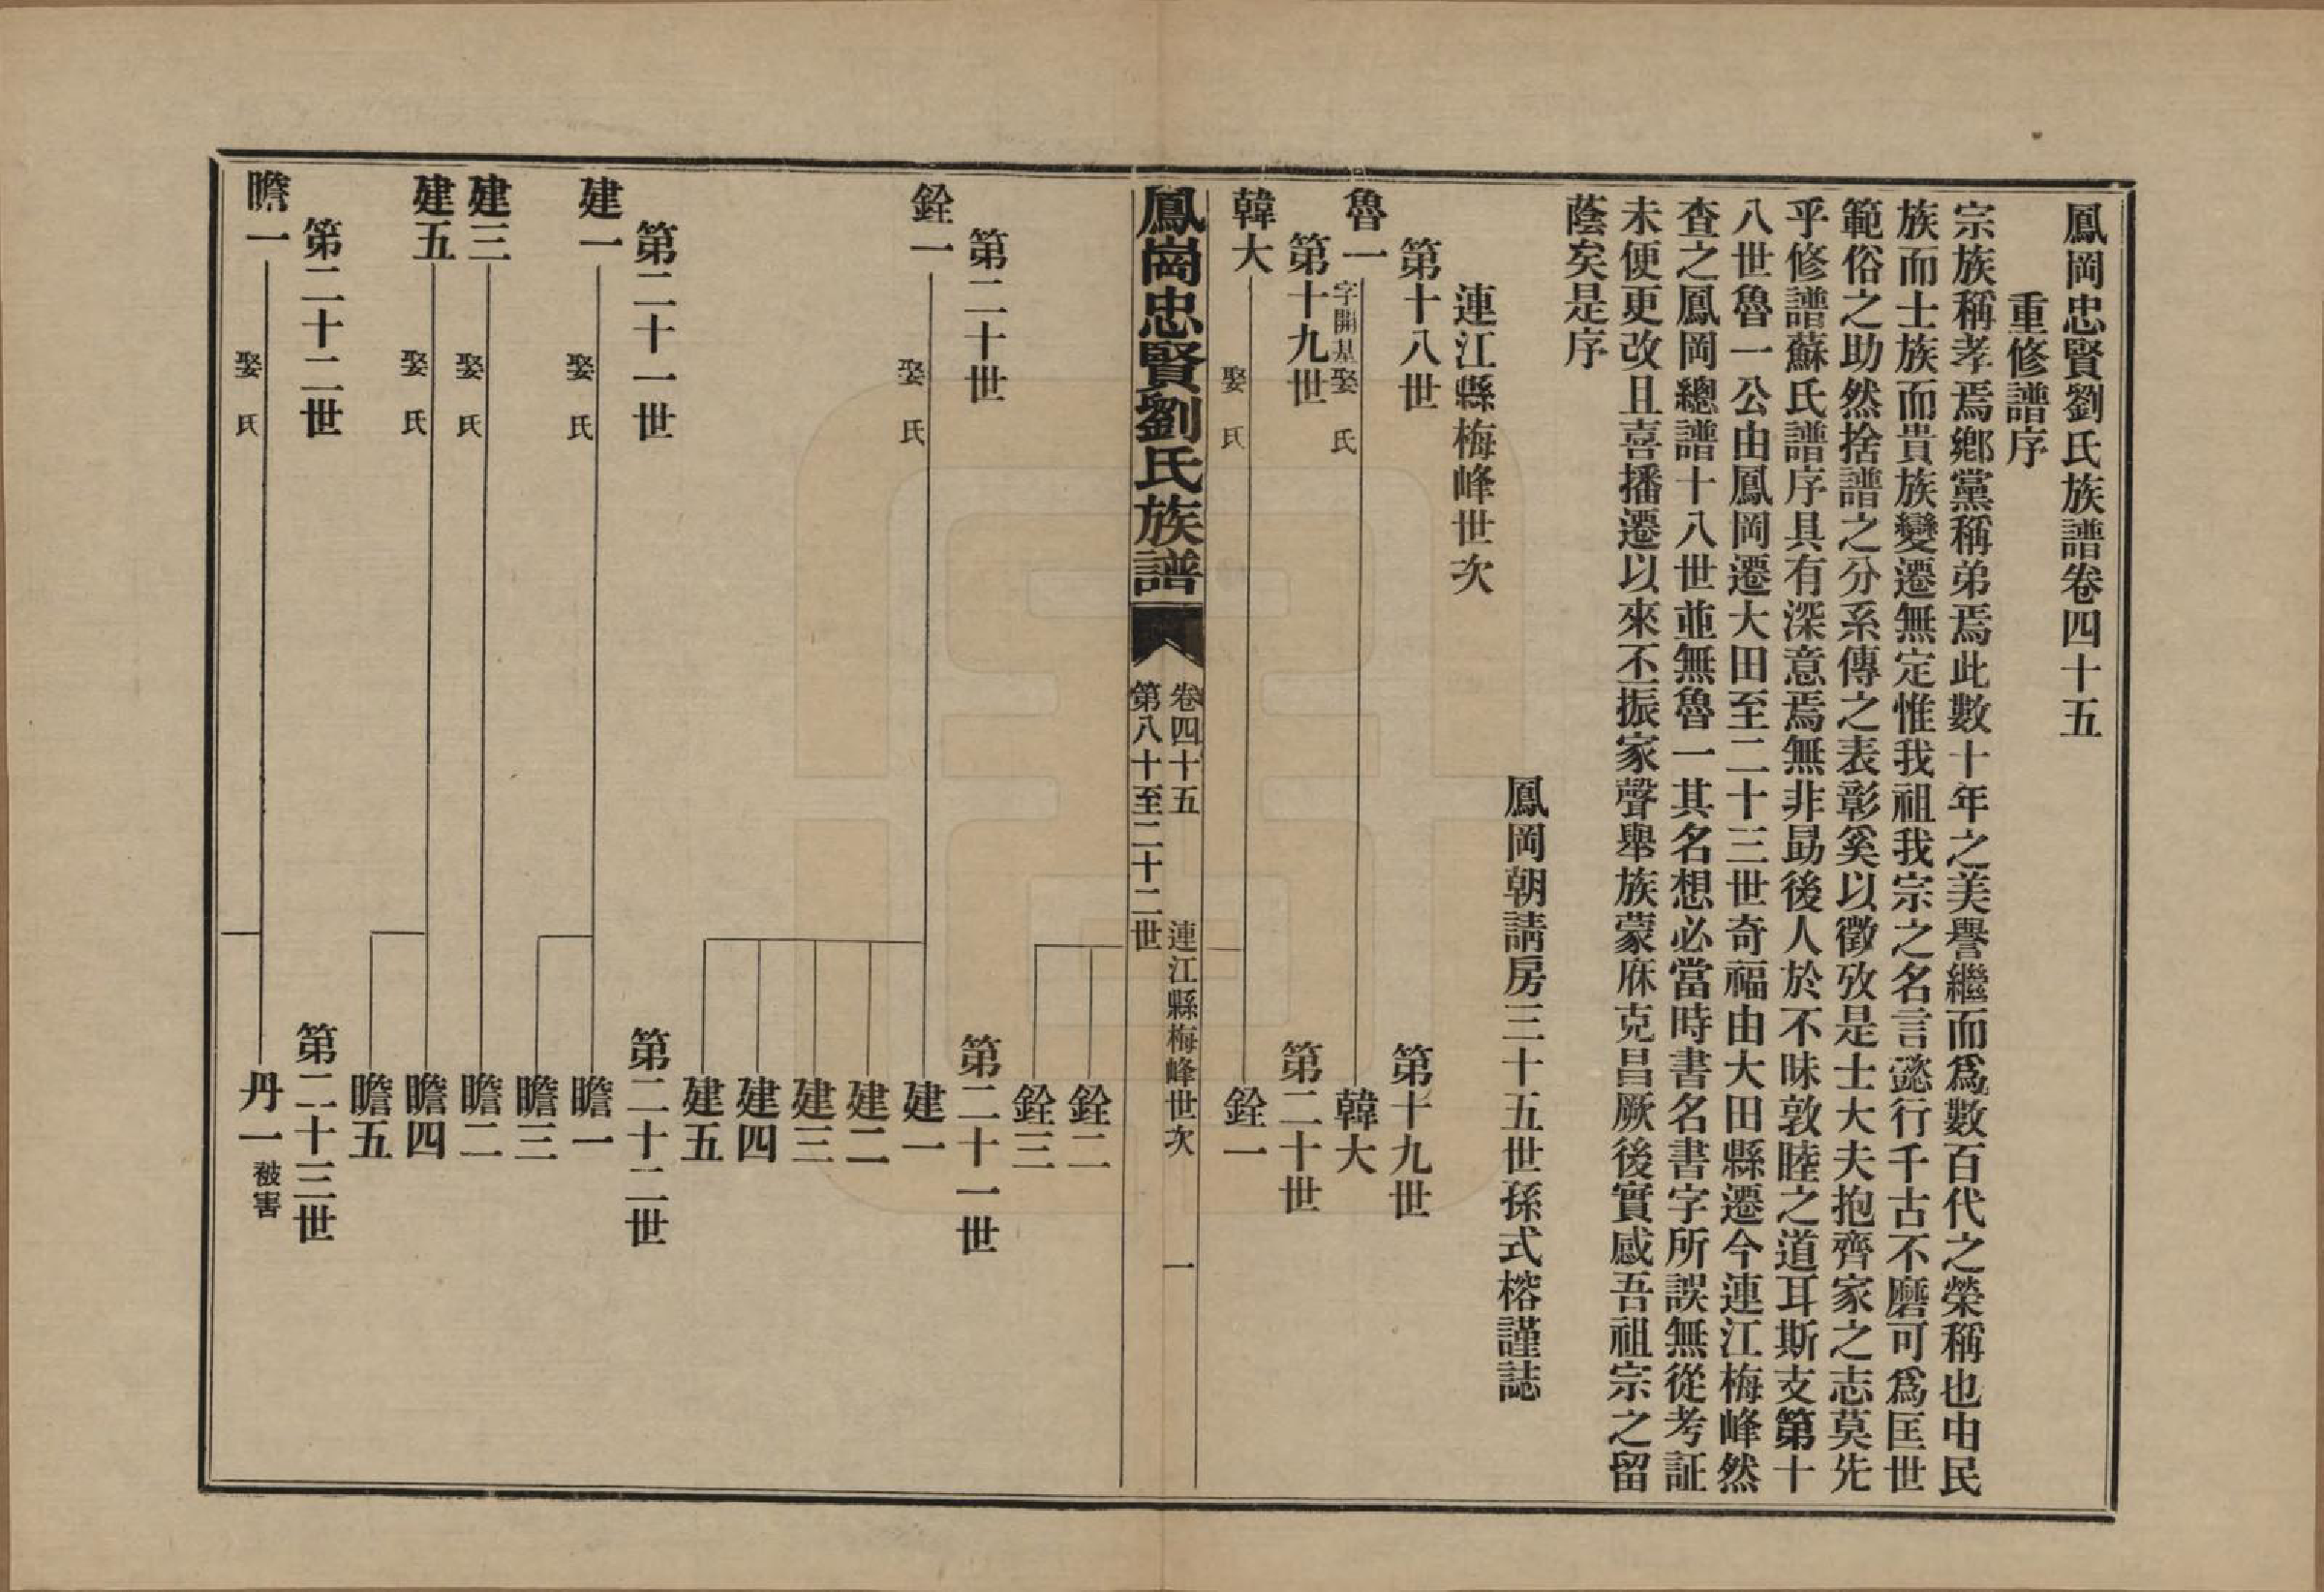 鳳岡忠賢劉氏族譜卷四十五
重修譜序
宗族稱孝焉鄉黨稱弟焉此數十年之美譽繼而爲數百代之榮稱也由民
族而士族而貴族變遷無定惟我祖我宗之名言懿行千古不磨可爲匡世
範俗之助然捨譜之分系傳之表彰奚以徵攷是士大夫抱齊家之志莫先
乎修譜蘇氏譜序具有深意焉無非勗後人於不昧敦睦之道耳斯支第十
八世魯一公由鳳岡遷大田至二十三世奇福由大田縣遷今連江梅峰然
查之鳳岡總譜十八世並無魯一其名想必當時書名書字所誤無從考証
未便更改且喜播遷以來丕振家聲舉族蒙庥克昌厥後實感吾祖宗之留
蔭矣是序
鳳岡朝請房三十五世孫式榕謹誌
連江縣梅峰世次
第十八世
第十九世
魯一
字開基娶 氏
韓大
第十九世
第二十世
韓大
娶 氏
銓一
鳳崗忠賢劉氏族譜
卷四十五
連江縣梅峰世次
一
第八十至二十二世
銓二
銓三
第二十世
第二十一世
銓一
娶 氏
建一
建二
建三
建四
建五
第二十一世
第二十二世
建一
娶 氏
瞻一
瞻三
建三
娶 氏
瞻二
建五
娶 氏
瞻四
瞻五
第二十二世
第二十三世
瞻一
娶 氏
丹一
被害